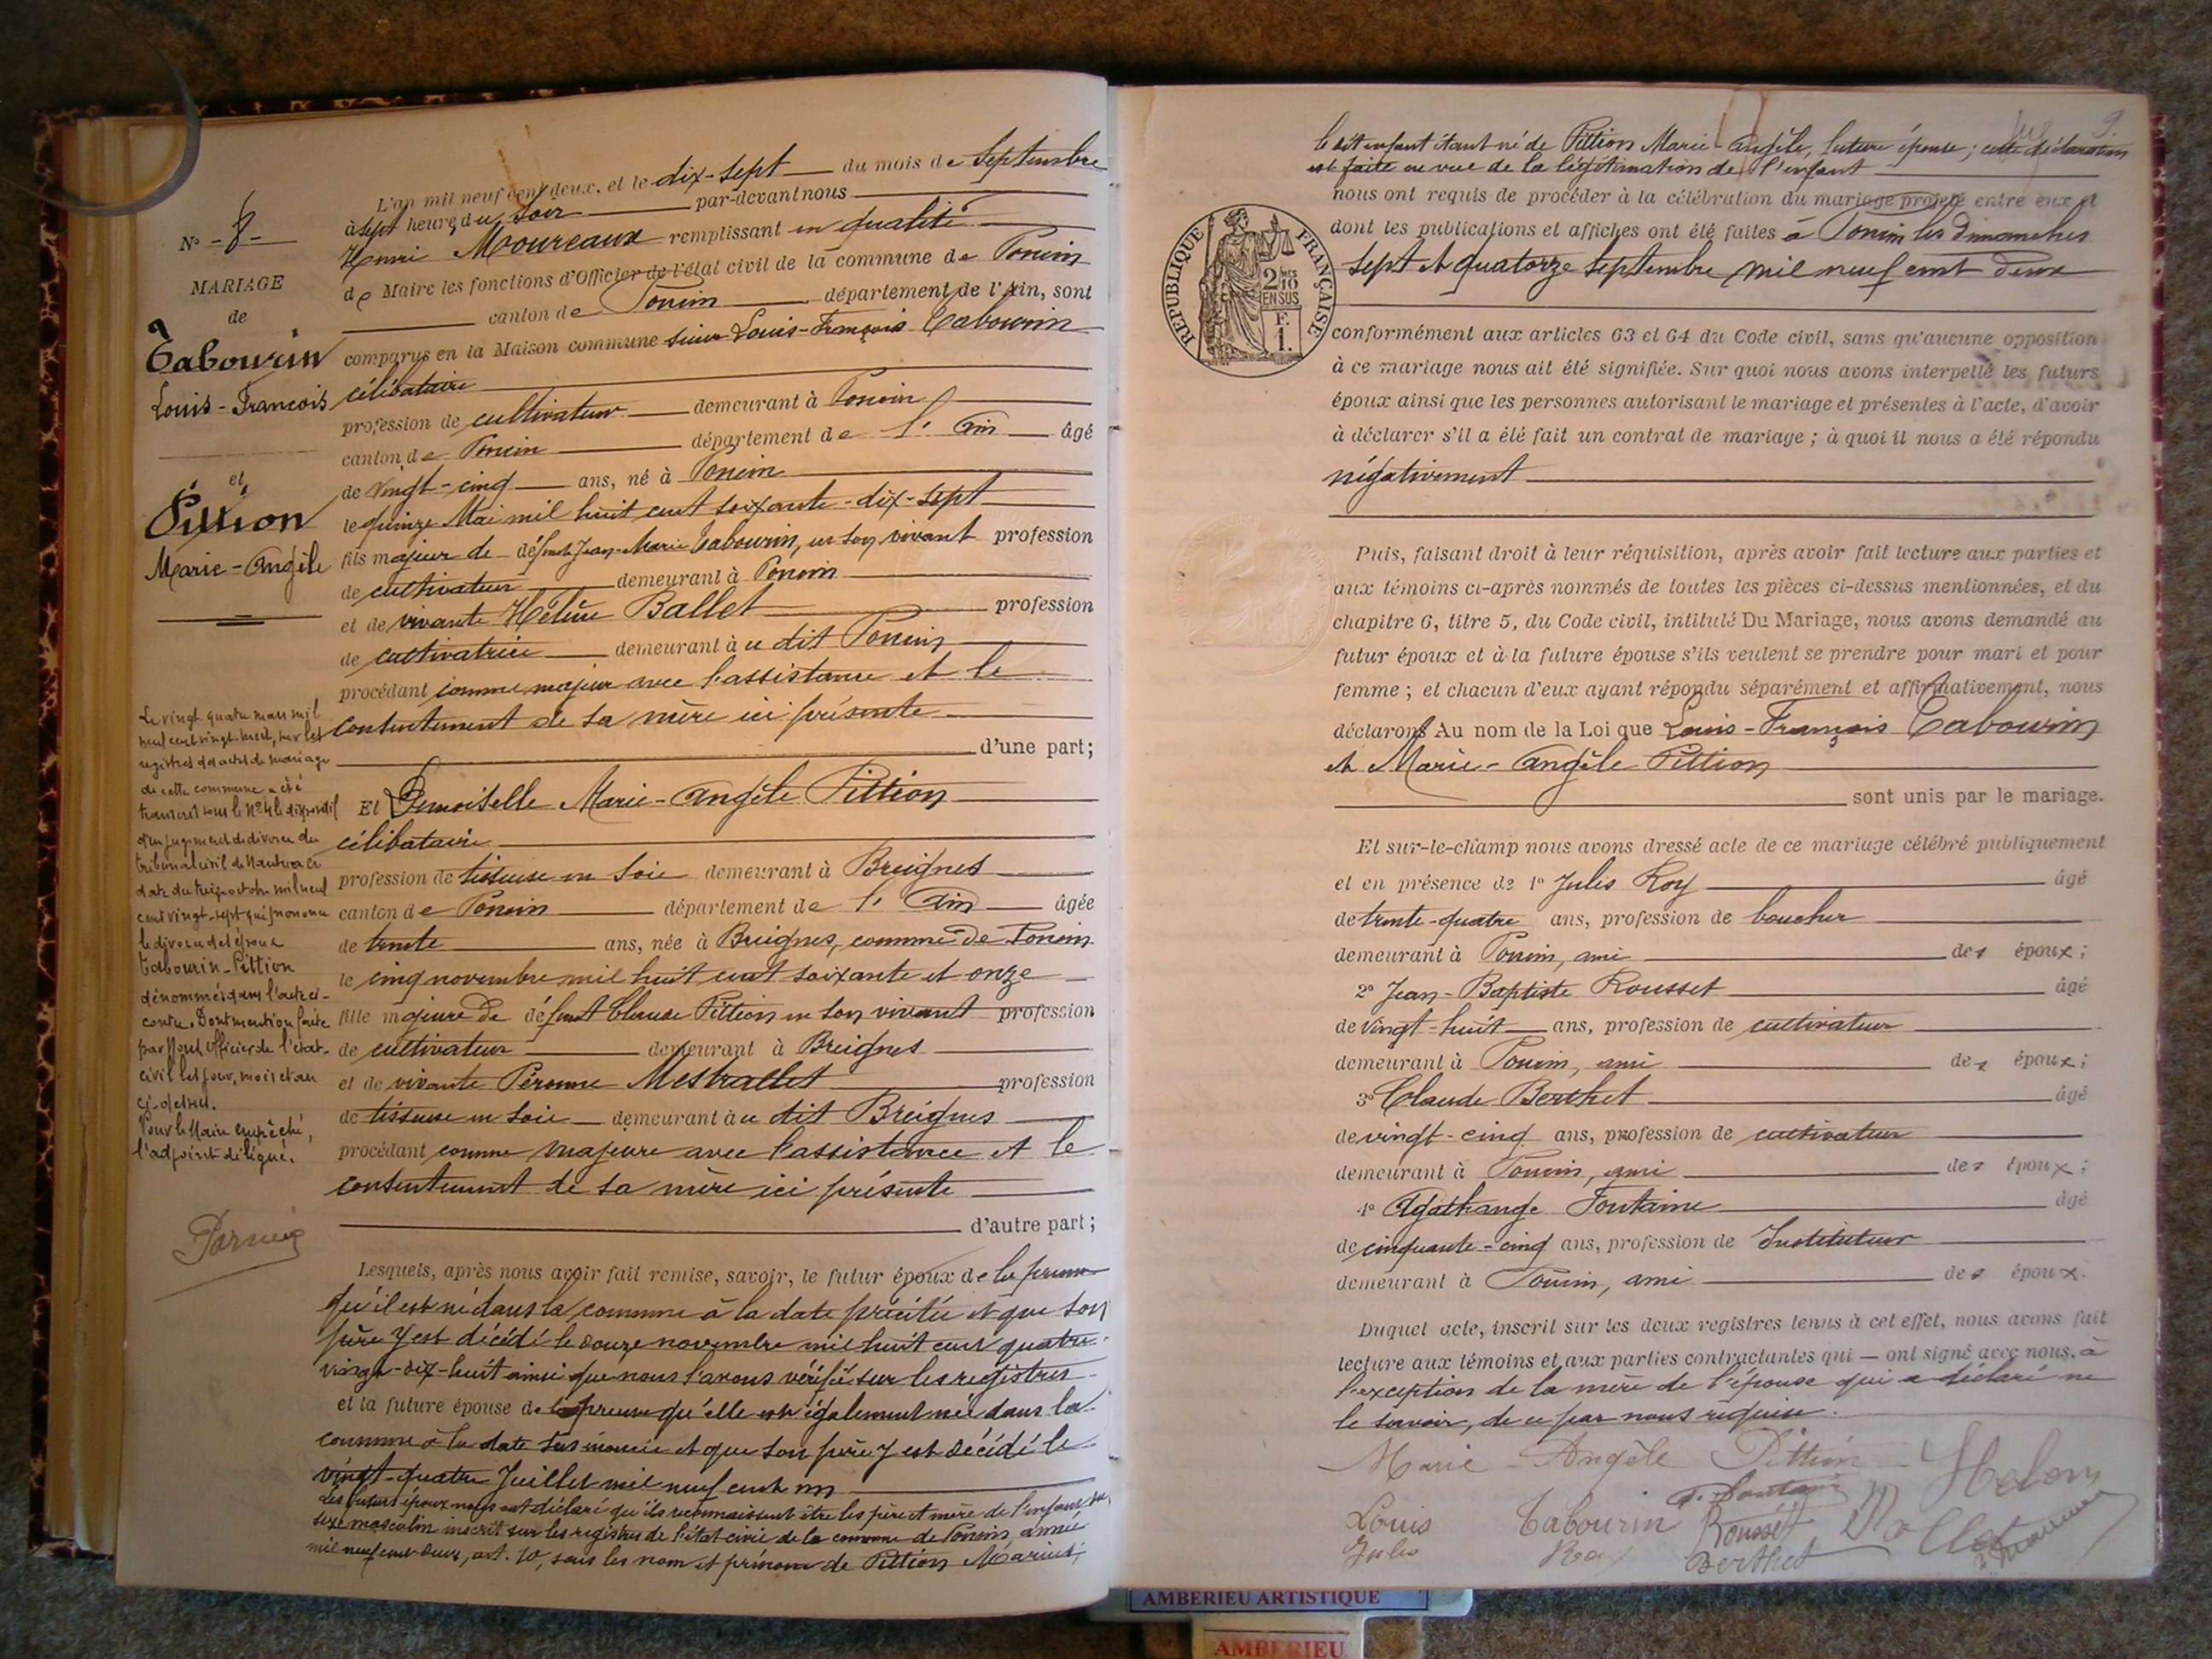 N° - 8 -
MARIAGE
de
Tabourin
Louis-François
et
Pittion
Marie-Angèle
Le vingt quatre mars mil
neuf cent vingt-huit, sur les
registres des actes de mariage
de cette commune a été
transcrit sous le N° 4 le dispositif
d'un jugement de divorce du
tribunal civil de Nantua en
date du treize octobre mil neuf
cent vingt-sept qui prononce
le divorce des époux
Tabourin-Pittion
dénommés dans l'acte ci-
contre. Dont mention faite
par Nous Officier de l'état-
civil les jour, mois et an
ci-dessus.
Pour le Maire empêché,
l'adjoint délégué.
L'an mil neuf cent deux, et le dix-sept du mois de Septembre
à sept heures du soir par-devant nous
Henri Moureaux remplissant en qualité
de Maire les fonctions d'Officier de l'état civil de la commune de Poncin
canton de Poncin département de l'Ain, sont
comparus en la Maison commune sieur Louis-François Tabourin
célibataire
profession de cultivateur demeurant à Poncin
canton de Poncin département de l'Ain âgé
de vingt-cinq ans, né à Poncin
le quinze Mai mil huit cent soixante-dix-sept
fils majeur de défunt Jean-Marie Tabourin, en son vivant profession
de cultivateur demeurant à Poncin
et de vivante Hélène Ballet profession
de cultivatrice demeurant à u dit Poncin
procédant comme majeur avec l'assistance et le
consentement de sa mère ici présente
d'une part;
Et Demoiselle Marie-Angèle Pittion
célibataire
profession de tisseuse en soie demeurant à Breignes
canton de Poncin département de l'Ain âgée
de trente ans, née à Breignes, comme de Poncin
le cinq novembre mil huit cent soixante et onze
fille majeure de défunt Claude Pittion en son vivant profession
de cultivateur demeurant à Breignes
et de vivante Péronne Mestrallet profession
de tisseuse en soie demeurant à u dit Breignes
procédant comme majeure avec l'assistance et le
consentement de sa mère ici présente
d'autre part;
Lesquels, après nous avoir fait remise, savoir, le futur époux de la preuve
qu'il est né dans la commune à la date précitée et que son
père y est décédé le douze novembre mil huit cent quatre-
vingt-dix-huit ainsi que nous l'avons vérifié sur les registres
et la future épouse de la preuve qu'elle est également née dans la
commune à la date sus énoncée et que son père y est décédé le
vingt-quatre Juillet mil neuf cent un
Les futurs époux nous ont déclaré qu'ils reconnaissent être les père et mère de l'enfant du
sexe masculin inscrit sur les registres de l'état civil de la commune de Poncin, année
mil neuf cent deux, art. 10, sous les nom et prénom de Pittion Marius,
9.
le dit enfant étant né de Pittion Marie-Angèle, future épouse; cette déclaration
est faite en vue de la légitimation de l'enfant
nous ont requis de procéder à la célébration du mariage projeté entre eux et
dont les publications et affiches ont été faites à Poncin les dimanches
sept et quatorze septembre mil neuf cent deux
RÉPUBLIQUE FRANÇAISE
2 10 MES
EN SUS
F.
1.
conformément aux articles 63 et 64 du Code civil, sans qu'aucune opposition
à ce mariage nous ait été signifiée. Sur quoi nous avons interpellé les futurs
époux ainsi que les personnes autorisant le mariage et présentes à l'acte, d'avoir
à déclarer s'il a été fait un contrat de mariage ; à quoi il nous a été répondu
négativement
Puis, faisant droit à leur réquisition, après avoir fait lecture aux parties et
aux témoins ci-après nommés de toutes les pièces ci-dessus mentionnées, et du
chapitre 6, titre 5, du Code civil, intitulé Du Mariage, nous avons demandé au
futur époux et à la future épouse s'ils veulent se prendre pour mari et pour
femme ; et chacun d'eux ayant répondu séparément et affirmativement, nous
déclarons Au nom de la Loi que Louis-François Tabourin
et Marie-Angèle Pittion
sont unis par le mariage.
Et sur-le-champ nous avons dressé acte de ce mariage célébré publiquement
et en présence de 1° Jules Roy âgé
de trente-quatre ans, profession de boucher
demeurant à Poncin, ami des époux;
2° Jean-Baptiste Rousset âgé
de vingt-huit ans, profession de cultivateur
demeurant à Poncin, ami des époux;
3° Claude Berthet âgé
de vingt-cinq ans, profession de cultivateur
demeurant à Poncin, ami des époux;
4° Agathange Fontaine âgé
de cinquante-cinq ans, profession de Instituteur
demeurant à Poncin, ami des époux.
Duquel acte, inscrit sur les deux registres tenus à cet effet, nous avons fait
lecture aux témoins et aux parties contractantes qui — ont signé avec nous, à
l'exception de la mère de l'épouse qui a déclaré ne
le savoir, de ce par nous requise.
Marie-Angèle Pittion
A. Fontaine
Louis Tabourin Rousset
Jules Roy Berthet
AMBERIEU ARTISTIQUE
AMBERIEU